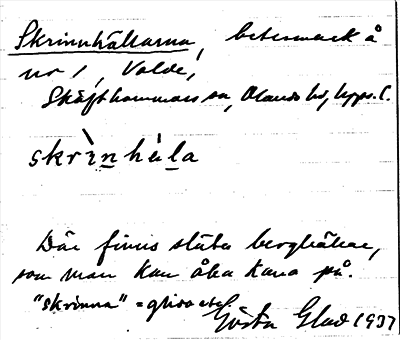 Skrinnhällarna, betesmark å
nr 1, Valde,
Skäfthammars sn, Olands hd, Upps. l.
skrìn hä́la
Där finns släta berghällar,
som man kan åka kana på.
"skrinna" =
Gösta Glad 1937